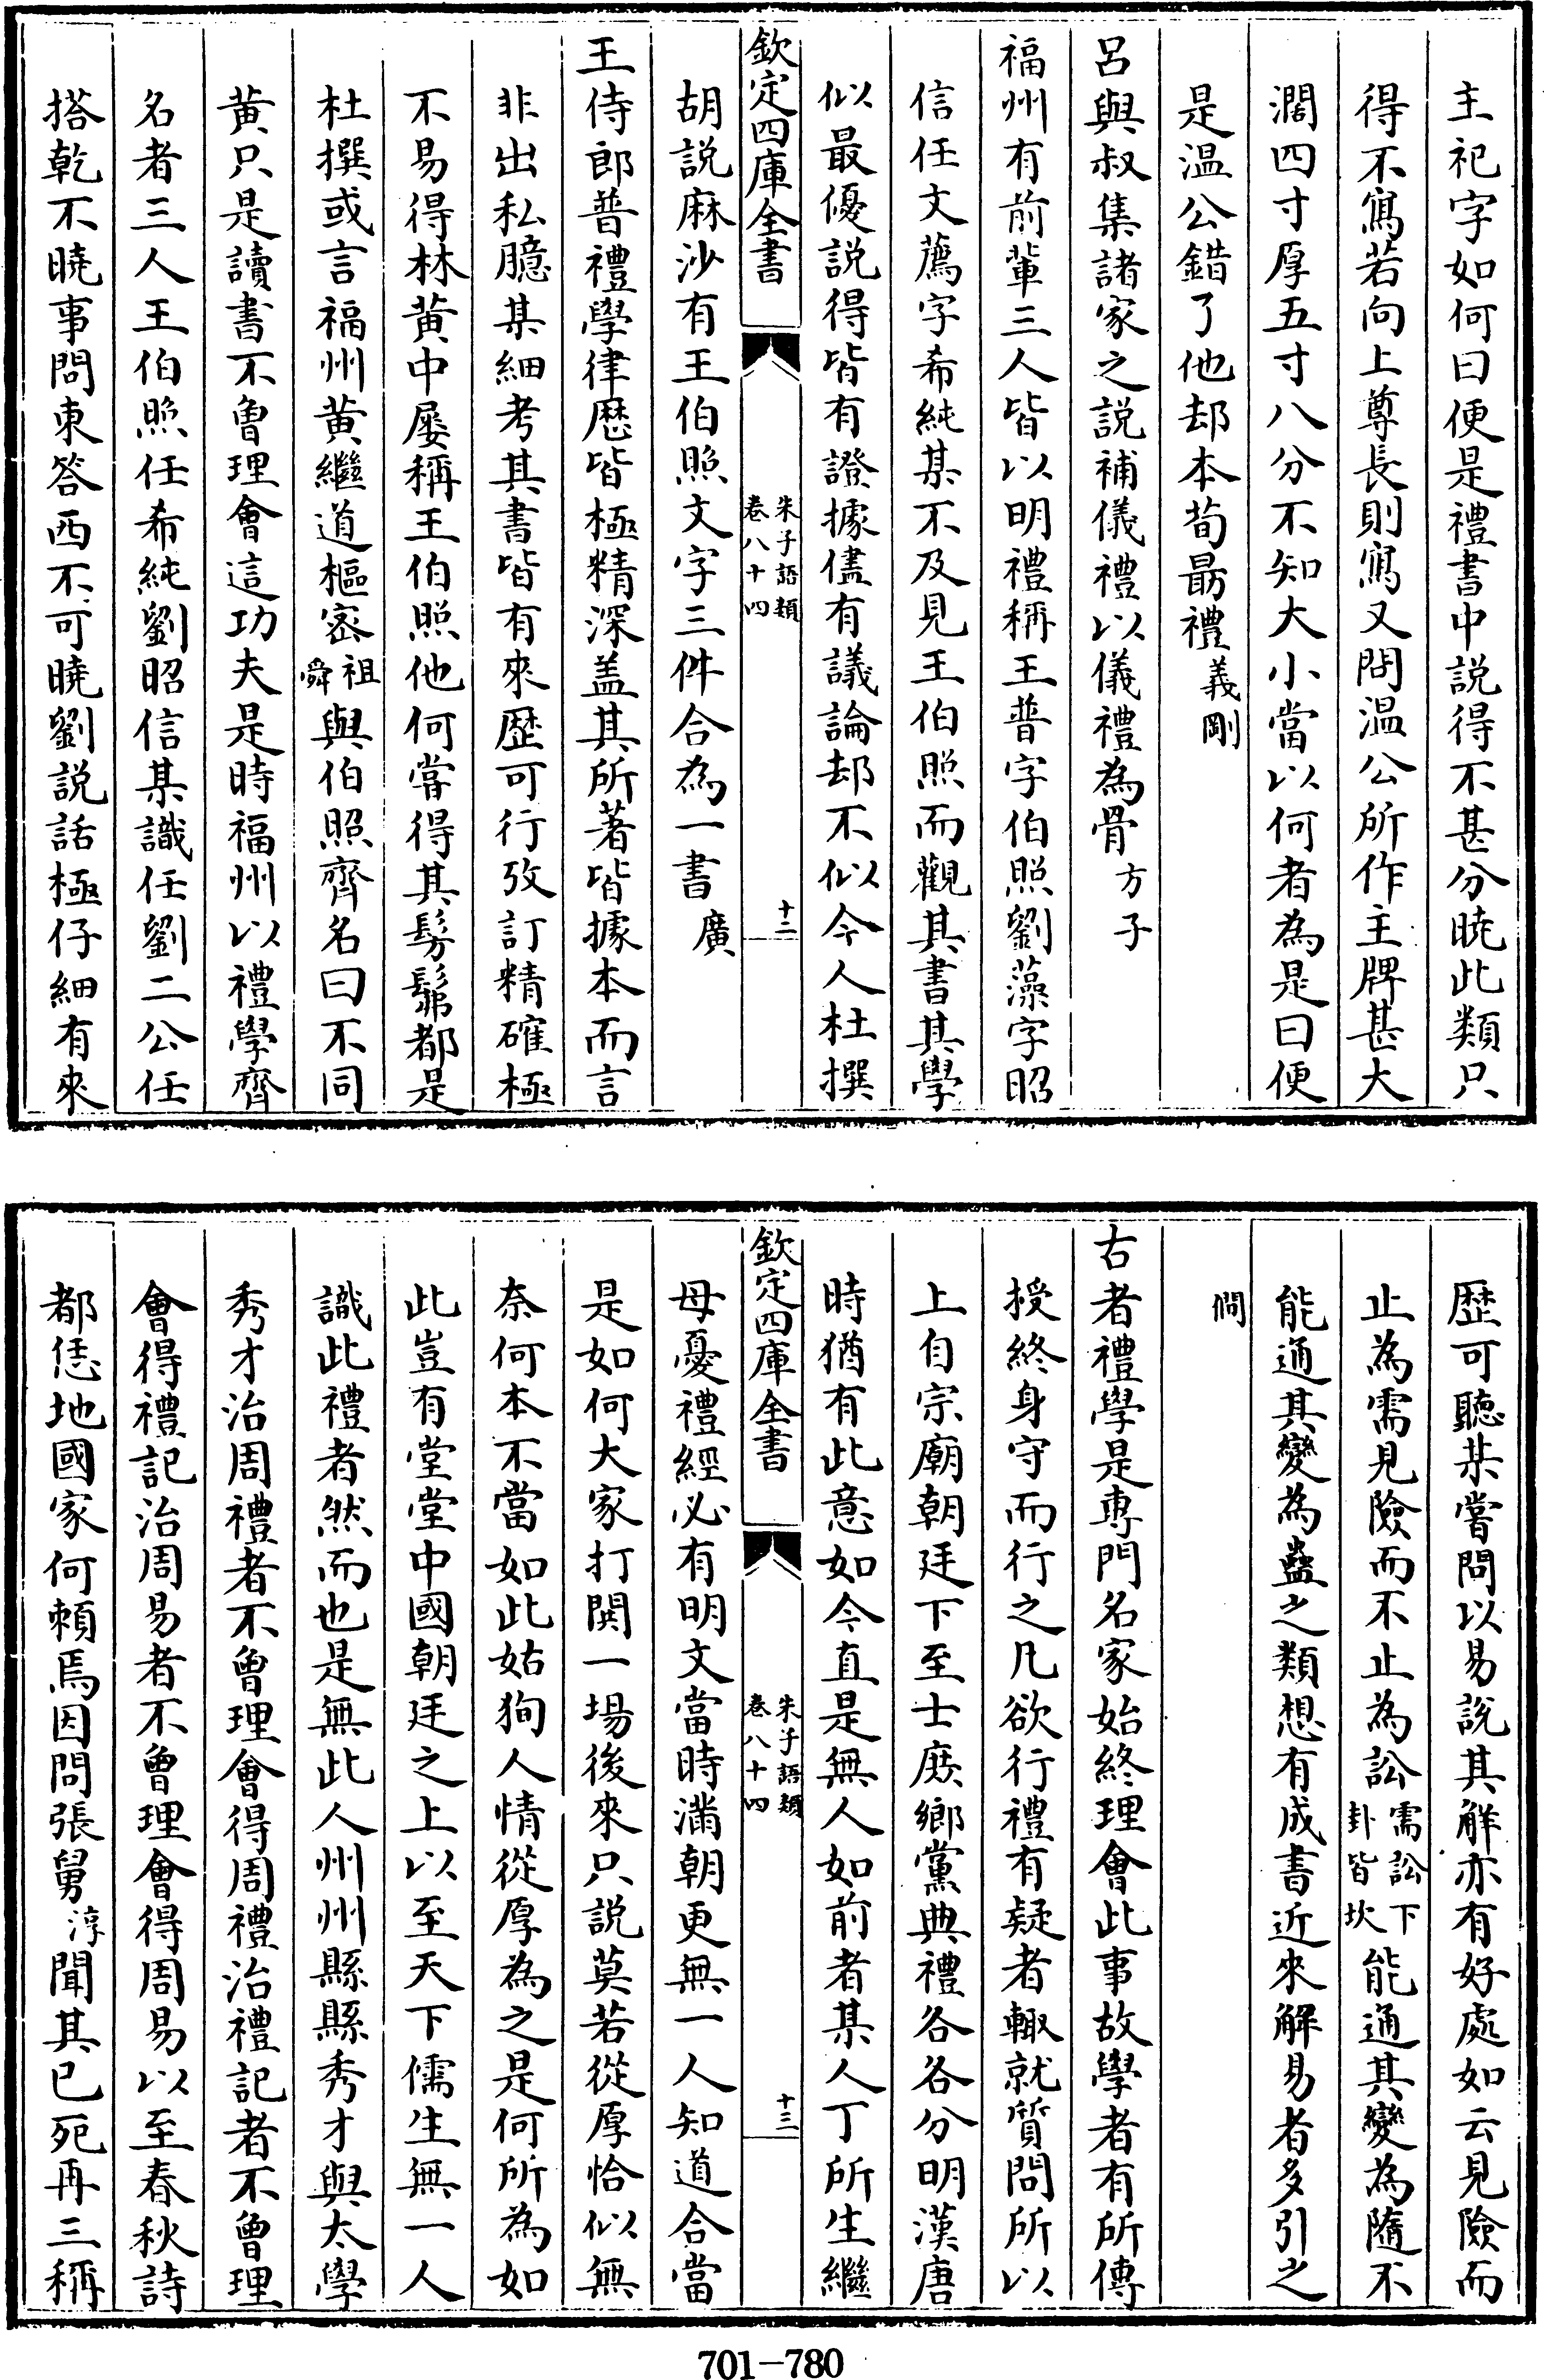 主祀字如何曰便是禮書中説得不甚分曉此類只
得不寫若向上尊長則寫又問温公所作主牌甚大
濶四寸厚五寸八分不知大小當以何者為是曰便
是温公錯了他却本荀勗禮義剛
吕與叔集諸家之説補儀禮以儀禮為骨方子
福州有前輩三人皆以明禮稱王普字伯照劉藻字昭
信任文薦字希純某不及見王伯照而觀其書其學
似最優説得皆有證據儘有議論却不似今人杜撰
欽定四庫全書
朱子語類
卷八十四
十二
胡説麻沙有王伯照文字三件合為一書廣
王侍郎普禮學律厯皆極精深盖其所著皆據本而言
非出私臆某細考其書皆有來歴可行攷訂精確極
不易得林黄中屢稱王伯照他何嘗得其髣髴都是
杜撰或言福州黄繼道樞宻祖舜與伯照齊名曰不同
黄只是讀書不曾理會這功夫是時福州以禮學齊
名者三人王伯照任希純劉昭信某識任劉二公任
搭乾不曉事問東答西不可曉劉説話極仔細有來
歴可聽某嘗問以易説其解亦有好處如云見險而
止為需見險而不止為訟需訟下卦皆坎能通其變為隨不
能通其變為蠱之類想有成書近來解易者多引之
僩
右者禮學是専門名家始終理會此事故學者有所傳
授終身守而行之凡欲行禮有疑者輙就質問所以
上自宗廟朝廷下至士庶鄉黨典禮各各分明漢唐
時猶有此意如今直是無人如前者某人丁所生繼
欽定四庫全書
朱子語類
卷八十四
十三
母憂禮經必有明文當時滿朝更無一人知道合當
是如何大家打閧一場後來只説莫若從厚恰似無
奈何本不當如此姑狥人情從厚為之是何所為如
此豈有堂堂中國朝廷之上以至天下儒生無一人
識此禮者然而也是無此人州州縣縣秀才與太學
秀才治周禮者不曾理會得周禮治禮記者不曾理
會得禮記治周易者不曾理會得周易以至春秋詩
都恁地國家何頼焉因問張舅淳聞其已死再三稱
701-780